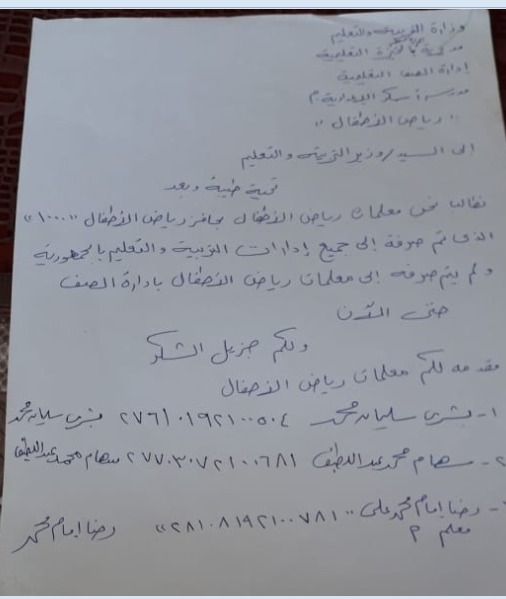 وزارة التربية والتعليم
مديرية الجيزة التعليمية
إدارة الصف التعليمية
مدرسة سكر الابتدائية م
" رياض الأطفال "
إلى السيد / وزير التربية والتعليم
تحية طيبة وبعد
نطالب نحن معلمات رياض الأطفال بحافز رياض الأطفال "١٠٠٠"
الذى تم صرفة إلى جميع إدارات التربية والتعليم بالجمهورية
ولم يتم صرفه إلى معلمات رياض الأطفال بادارة الصف
حتى الآن
ولكم جزيل الشكر
مقدمه لكم معلمات رياض الأطفال
١- بشرى سليمان محمد ٢٧٦٠١٠١٩٢١٠٠٥٠٤ بشرى سليمان محمد
٢- سهام محمد عبد اللطيف ٢٧٧٠٣٠٧٢١٠٠٦٨١ سهام محمد عبد اللطيف
- رضا إمام محمد على "٢٨١٠٨١٩٢١٠٠٧٨١" رضا إمام محمد
معلم م